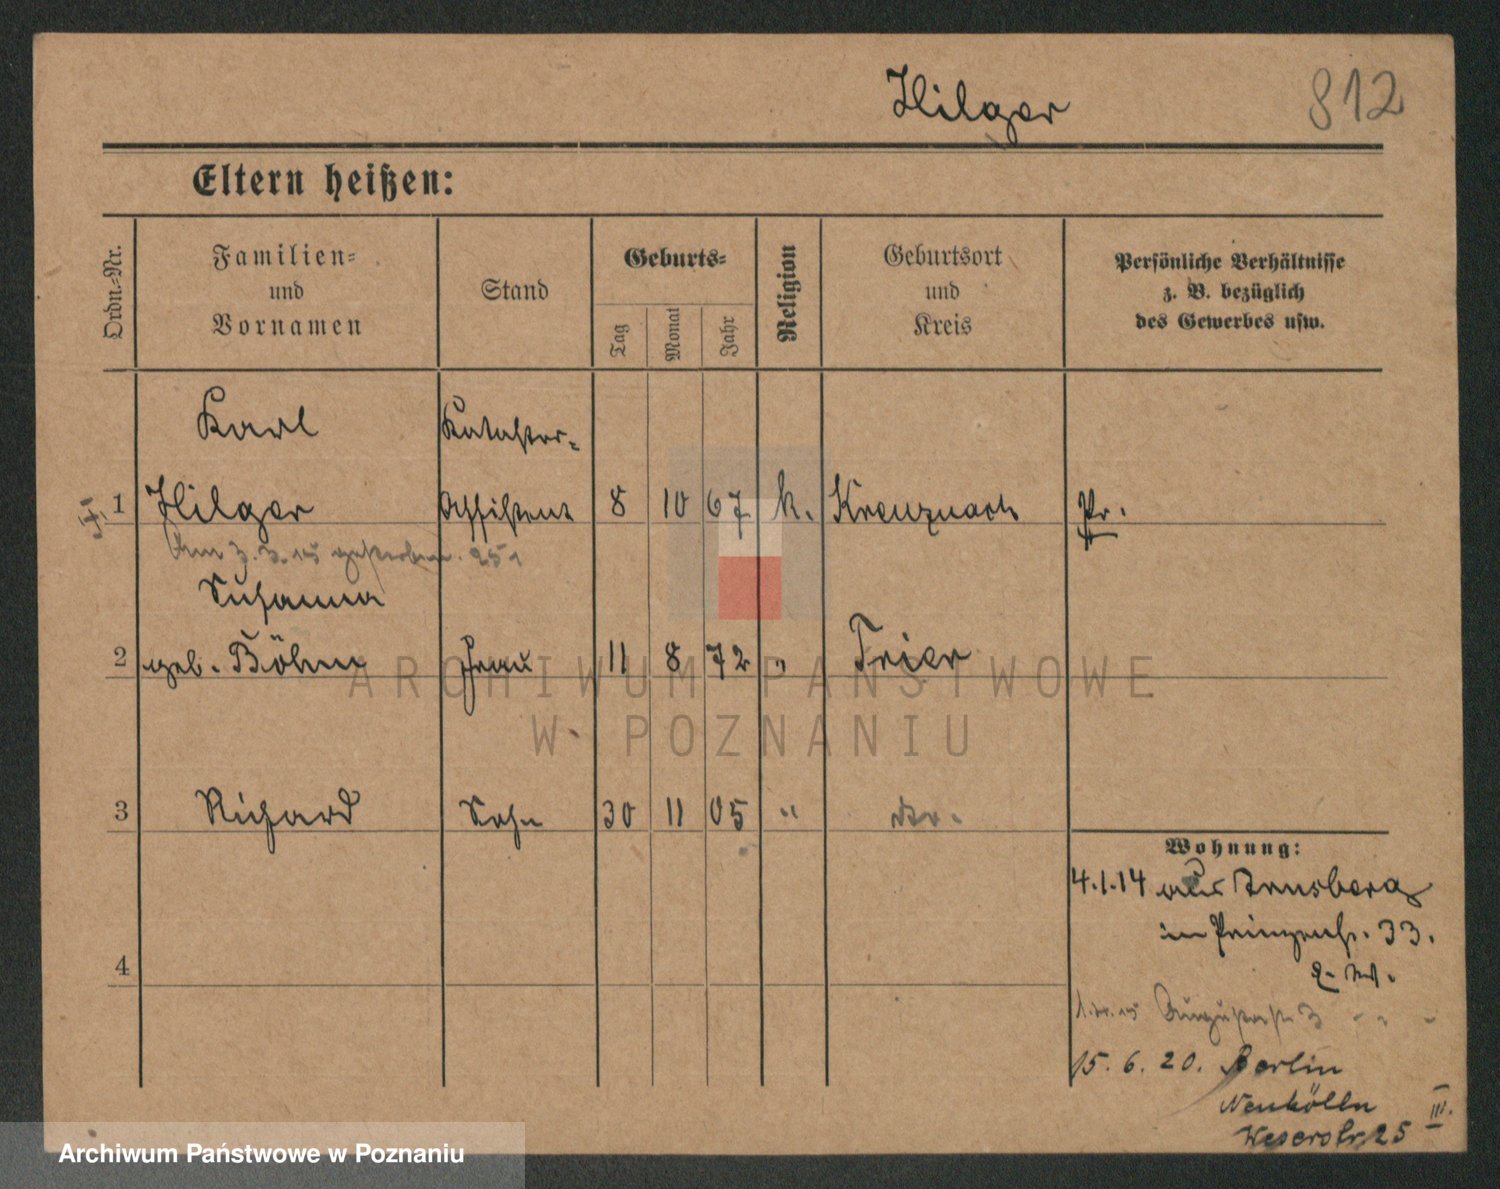 Hilger 812
Eltern heißen:
Ordn.-Nr.
Familien-
und
Vornamen
Stand
Geburts-
Tag
Monat
Jahr
Religion
Geburtsort
und
Kreis
Persönliche Verhältnisse
z. B. bezüglich
des Gewerbes usw.
Karl Kataster-
1 Hilger Assistent 8 10 67 k. Kreuznach Pr.
Am 3. 3. 15 gestorben.
Susanna
2 geb. Böhm Frau 11 8 72 " Trier
3 Richard Sohn 30 11 05 "
Wohnung:
4.1.14 aus Arnsberg
in Prinzenstr. 33.
4
Augustastr. 3
15. 6. 20. Berlin
Neukölln III.
Weserstr. 25
ARCHIWUM PAŃSTWOWE
W POZNANIU
Archiwum Państwowe w Poznaniu